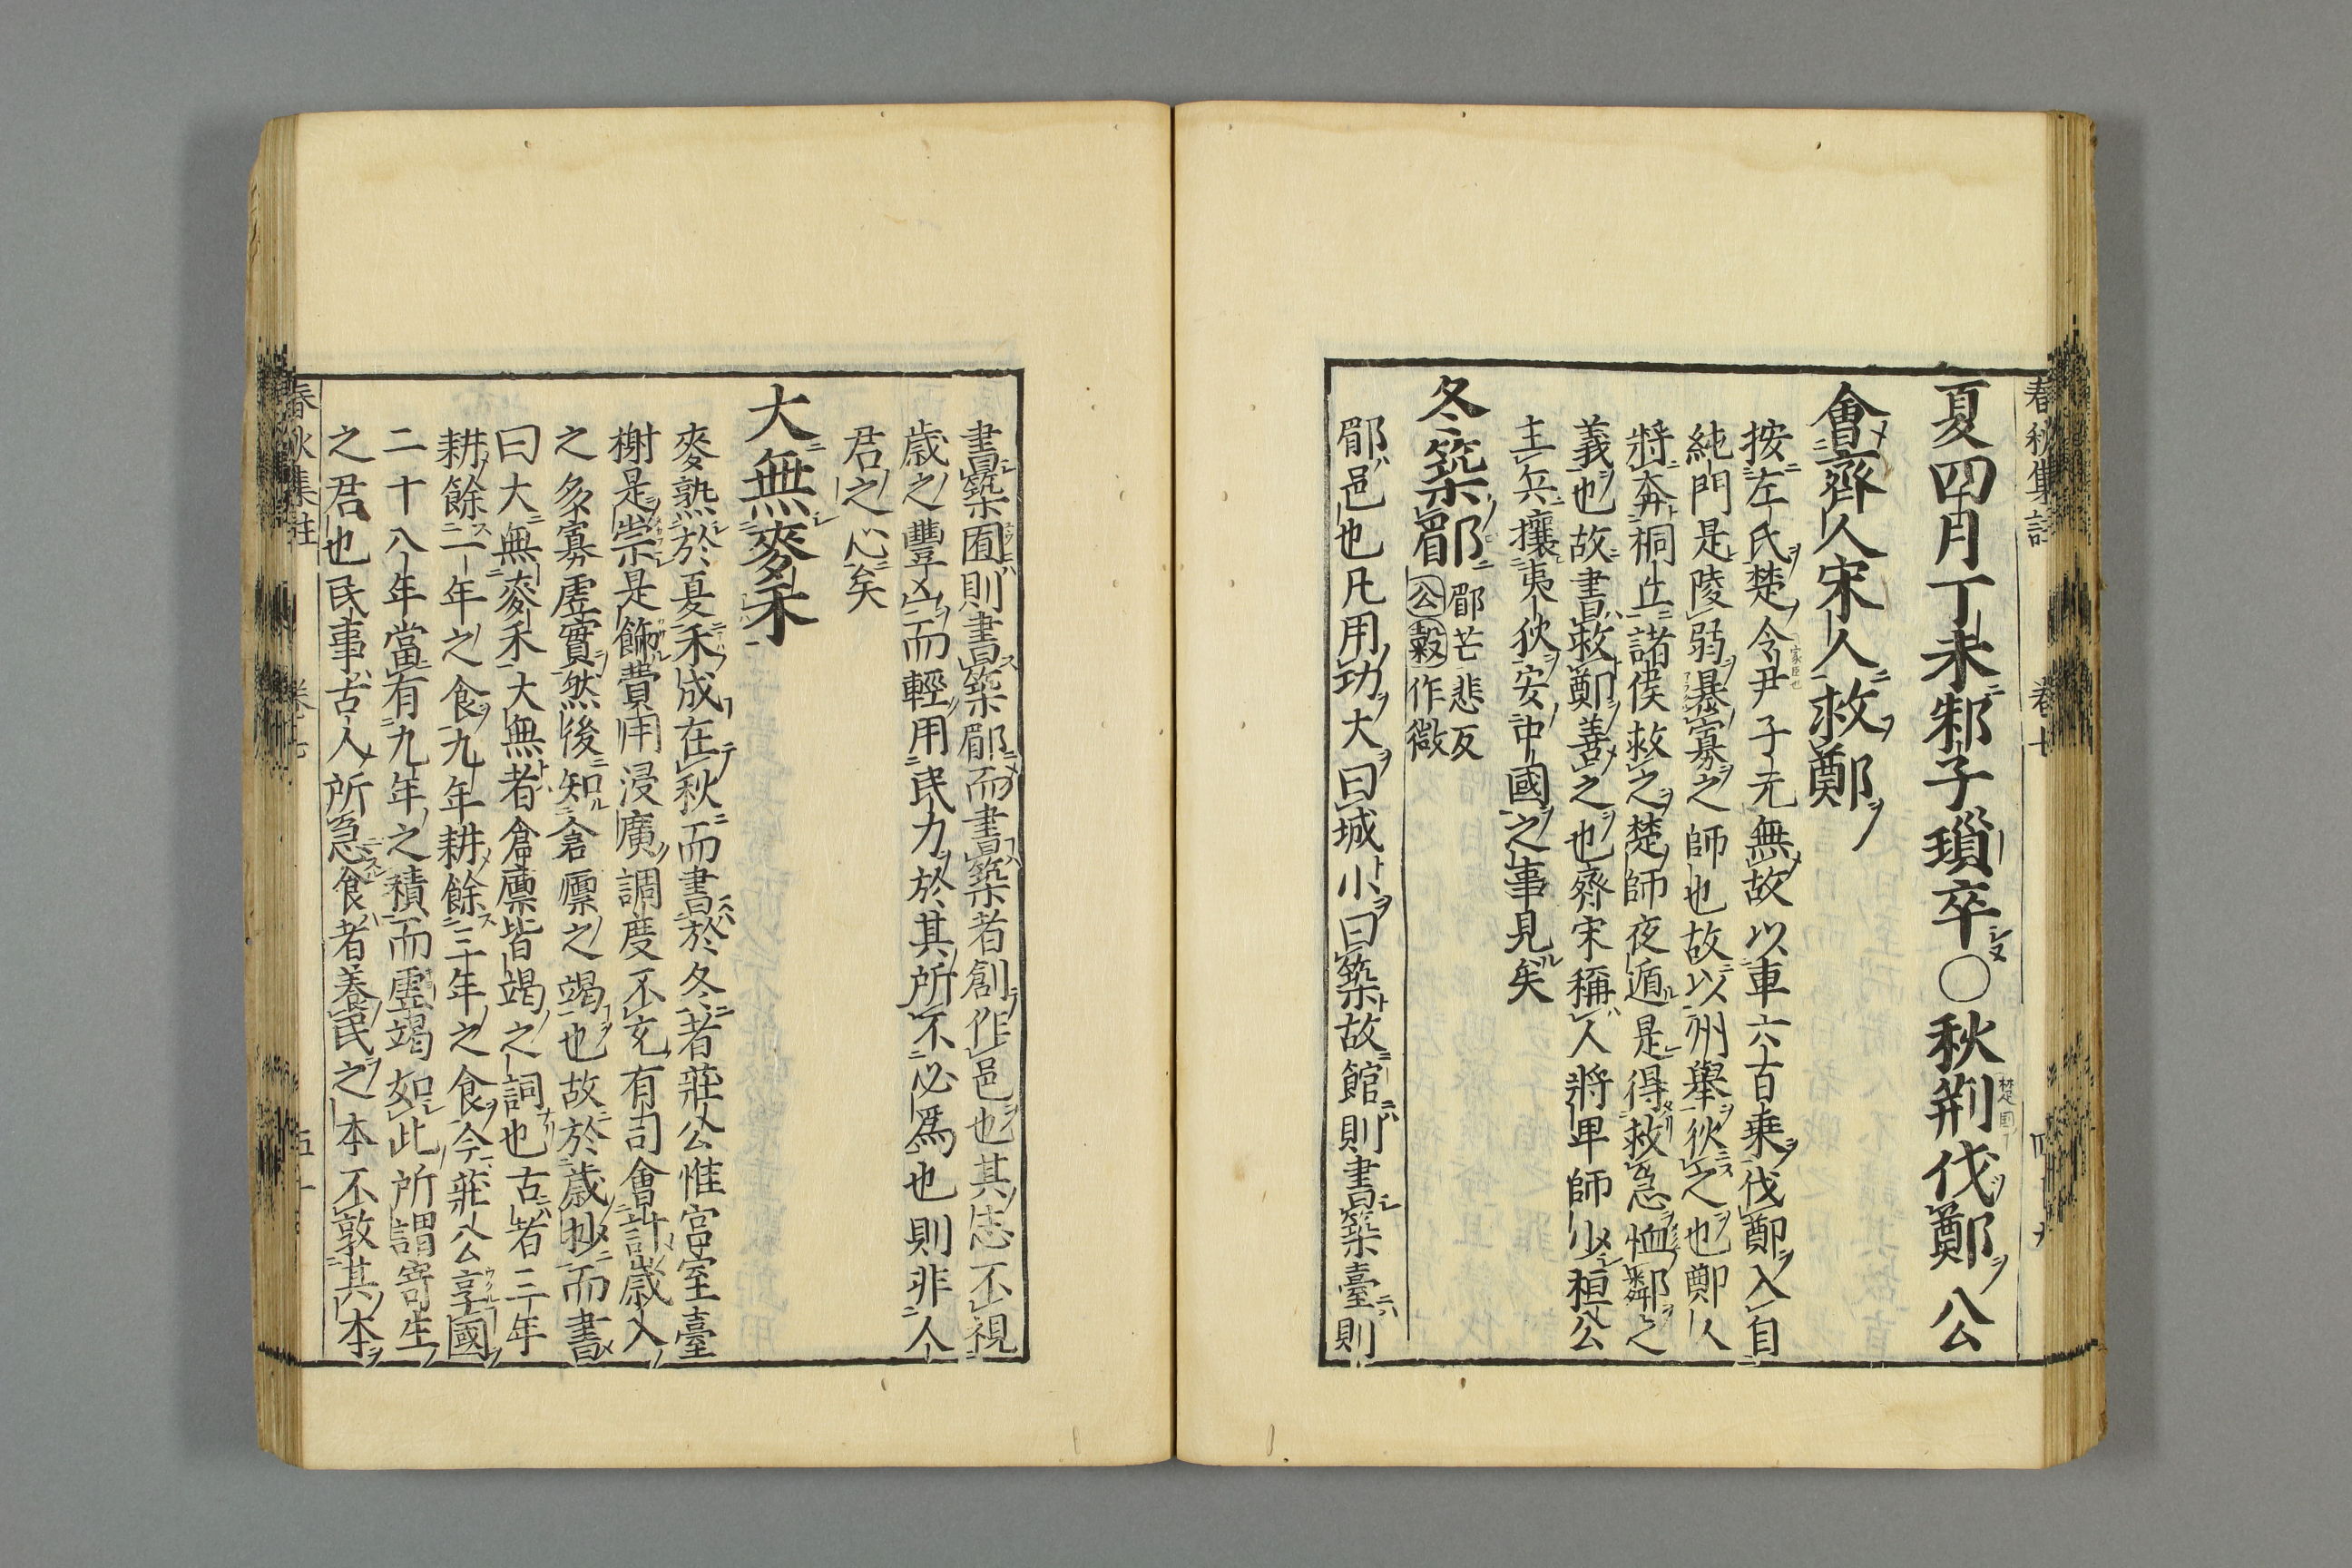 夏四月丁未邾子瑣卒○秋荆伐鄭公
會齊人宋人救鄭
按左氏楚令尹子元無故以車六百乗伐鄭入自
純門是陵弱暴寡之師也故以州舉狄之也鄭人
將奔桐丘諸侯救之楚師夜遁是得救急恤鄰之
義也故書救鄭善之也齊宋稱人將卑師少桓公
主兵攘夷狄安中國之事見矣
冬築郿郿芒悲反
公穀作微
郿邑也凡用功大曰城小曰築故館則書築臺則
書築囿則書築郿而書築者創作邑也其志不視
歲之豐凶而輕用民力於其所不必為也則非人
君之心矣
大無麥禾
麥熟於夏禾成在秋而書於冬者莊公惟宮室臺
榭是崇是飾費用浸廣調度不充有司會計歲入
之多寡虛實然後知倉廩之竭也故於歲抄而書
曰大無麥禾大無者倉廩皆竭之詞也古者三年
耕餘一年之食九年耕餘三年之食今莊公享國
二十八年當有九年之積而虛竭如此所謂寄生
之君也民事古人所急食者養民之本不敦其本
春秋集註 卷七